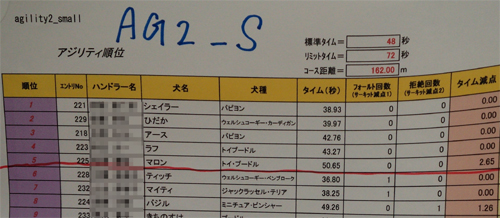 agility2_small
AG2_S
アジリティ順位
標準タイム= 48 秒
リミットタイム= 72 秒
コース距離= 162.00 m
順位 エントリNo ハンドラー名 犬名 犬種 タイム(秒) フォールト回数 (サーキット減点1) 拒絶回数 (サーキット減点2) タイム減点
1 221 シェイラー パピヨン 38.93 0 0 0.00
2 229 ひだか ウェルシュコーギー・カーディガン 39.97 0 0 0.00
3 218 アース パピヨン 42.76 0 0 0.00
4 223 ラフ トイプードル 43.27 0 0 0.00
5 225 マロン トイ・プードル 50.65 0 0 2.65
6 228 ティッチ ウェルシュコーギー・ペンブローク 36.80 1 0 0.00
7 232 マイティ ジャックラッセル・テリア 38.25 1 0 0.00
8 224 バジル ミニチュア・ピンシャー 49.26 0 1 1.26